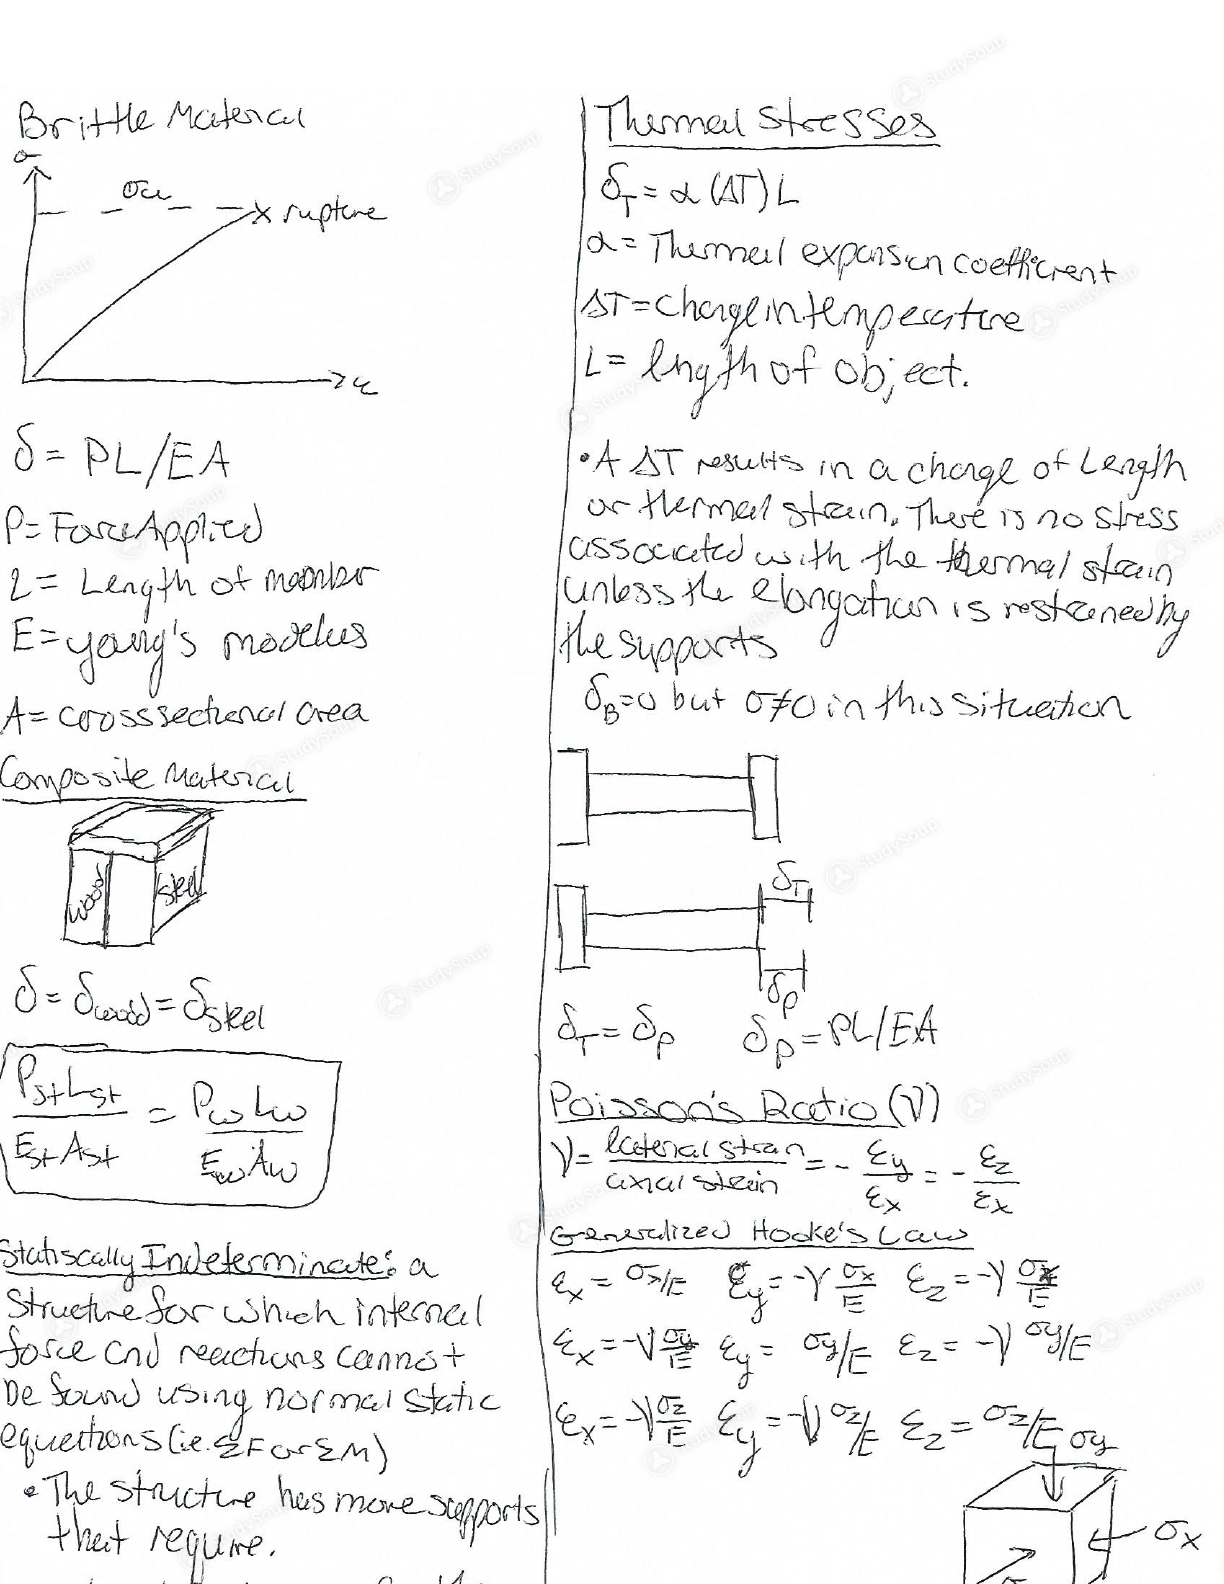 Brittle Material
σ
σu
x rupture
ε
δ = PL/EA
P = Force Applied
L = Length of member
E = young's modulus
A = crosssectional area
Composite Material
wood
steel
δ = δwood = δsteel
PstLst / EstAst = PwLw / EwAw
Statiscally Indeterminate: a
structure for which internal
force and reactions cannot
be found using normal static
equations (i.e. ΣF or ΣM)
• The structure has more supports
that require.
Thermal Stresses
δT = α (ΔT) L
α = Thermal expansion coefficient
ΔT = change in temperature
L = length of object.
• A ΔT results in a change of Length
or thermal strain. There is no stress
associated with the thermal strain
unless the elongation is restrained by
the supports
δB = 0 but σ ≠ 0 in this situation
δT
δP
δT = δP    δP = PL/EA
Poisson's Ratio (ν)
ν = laterial strain / axial strain = - εy/εx = - εz/εx
Generalized Hooke's Law
εx = σx/E  εy = -ν σx/E  εz = -ν σx/E
εx = -ν σy/E  εy = σy/E  εz = -ν σy/E
εx = -ν σz/E  εy = -ν σz/E  εz = σz/E
σy
σx
StudySoup